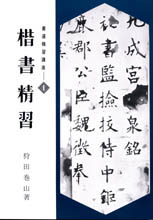 書道精習講座—1
楷書精習
狩田巻山著
九成宮泉銘
書監撿挍侍中
郡公臣魏徵奉